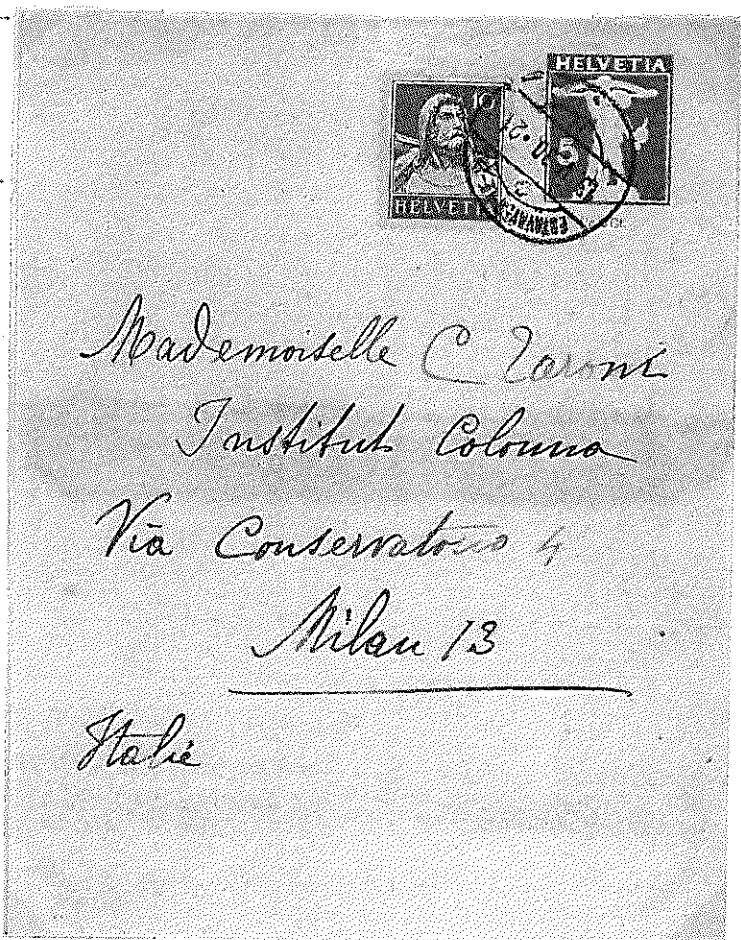 HELVETIA
10
HELVETIA
5
Mademoiselle C Taroni
Institut Colonna
Via Conservatorio 4
Milan 13
Italie